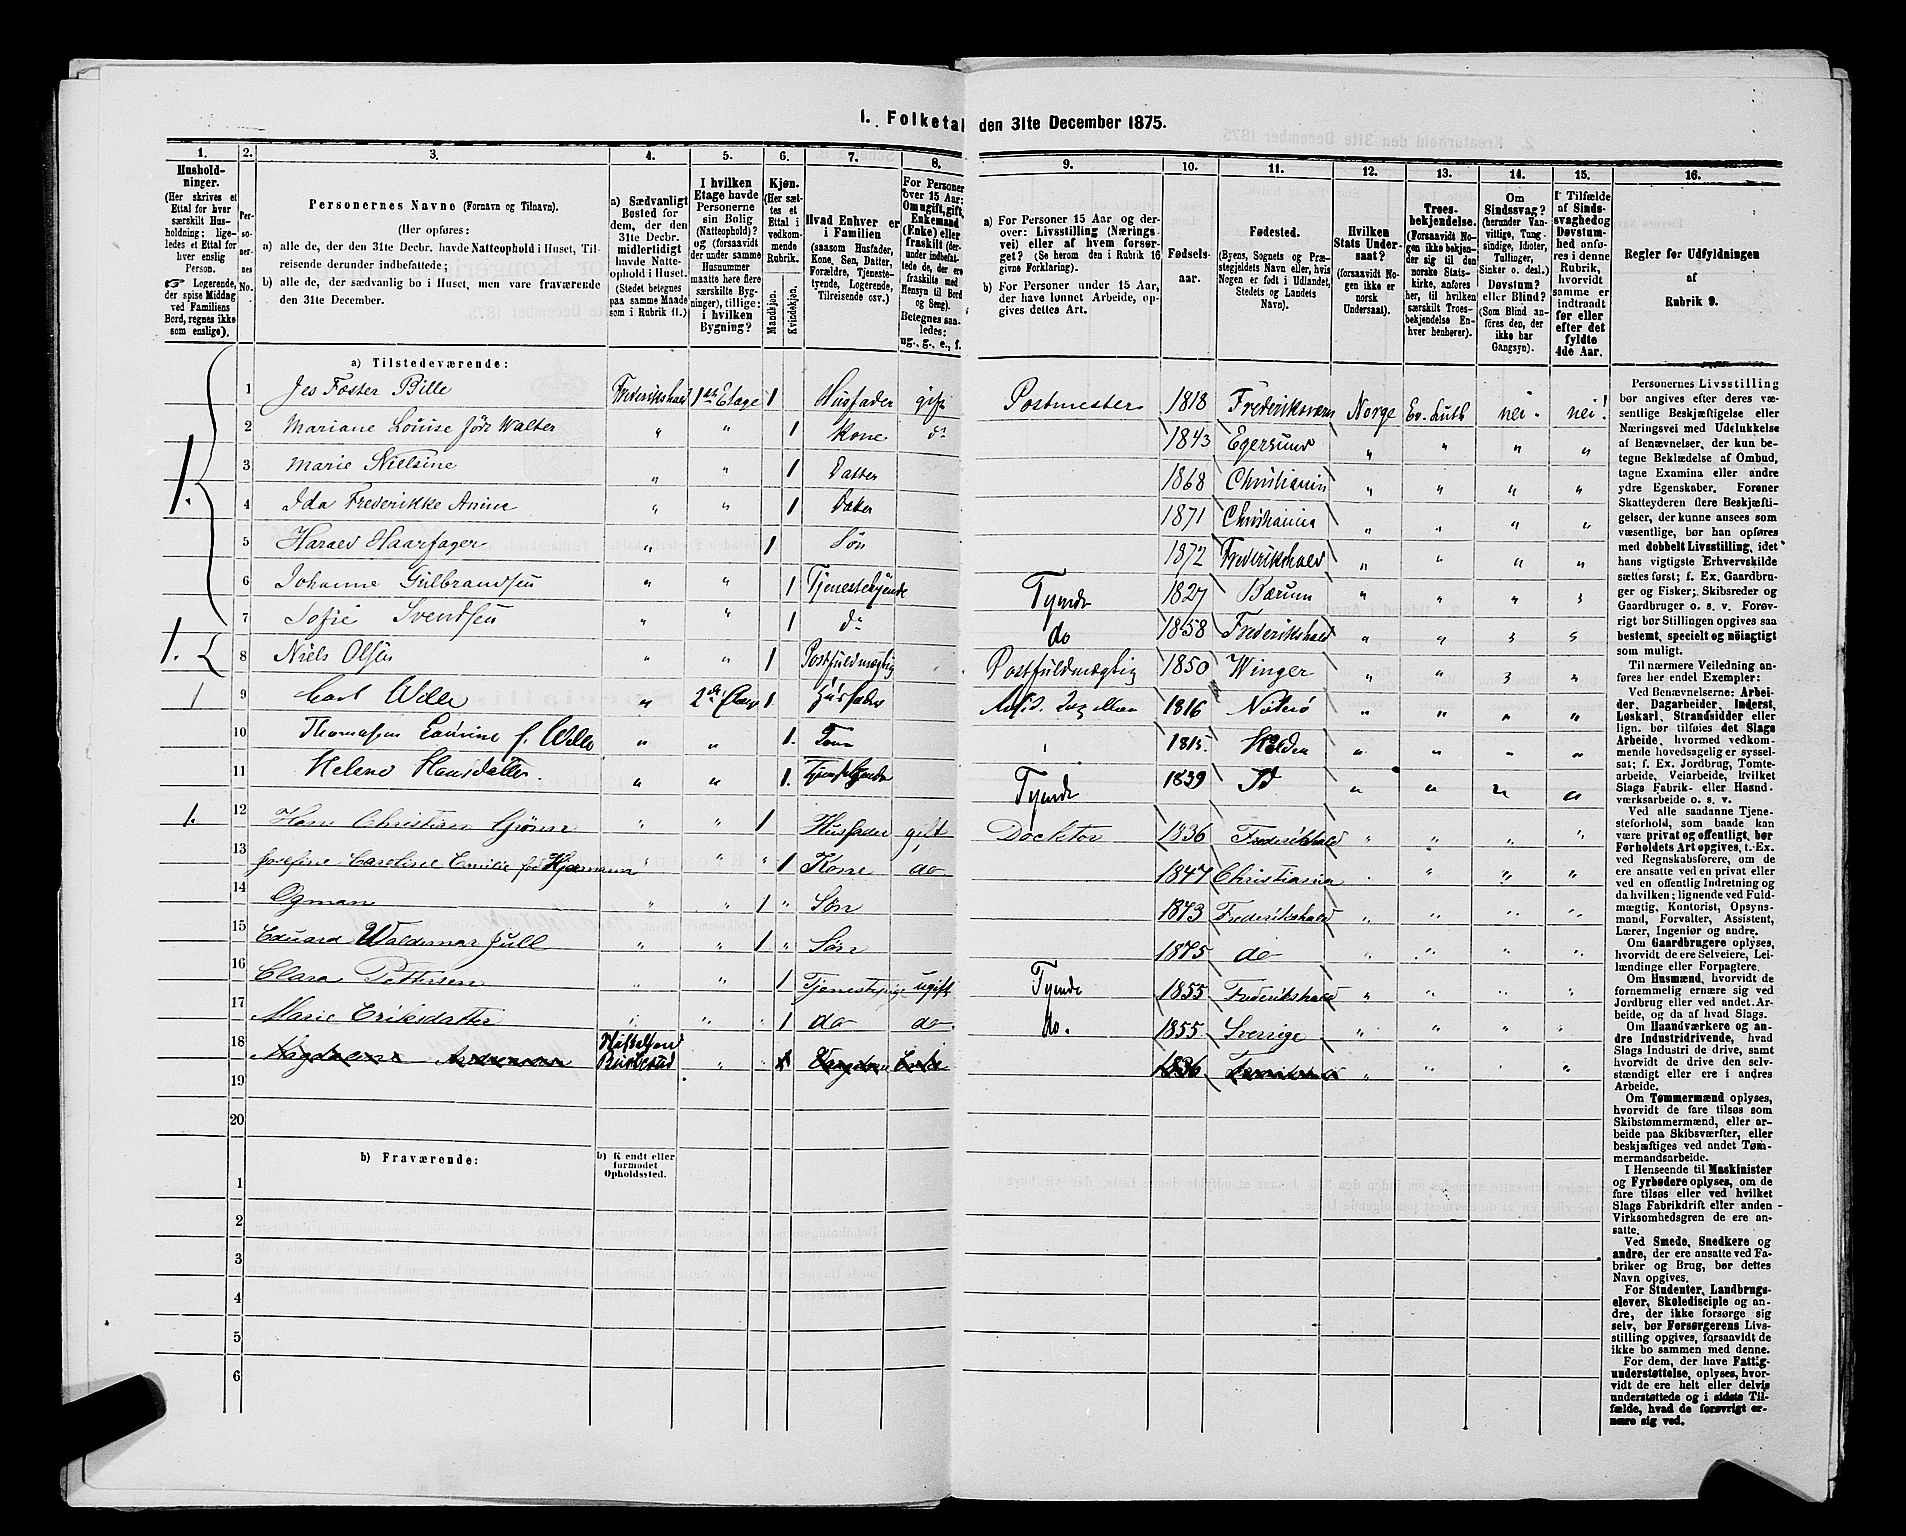 1. Folketal den 31te December 1875.
1. 2. 3. 4. 5. 6. 7. 8. 9. 10. 11. 12. 13. 14. 15. 16.
Hushold-
ninger.
(Her skrives et
Ettal for hver
særskilt Hus-
holdning; lige-
ledes et Ettal for
hver enslig
Person.
☛ Logerende,
der spise Middag
ved Familiens
Bord, regnes ikke
som enslige).
Per-
so-
ner-
nes
No.
Personernes Navne (Fornavn og Tilnavn).
(Her opføres:
a) alle de, der den 31te Decbr. havde Natteophold i Huset, Til-
reisende derunder indbefattede;
b) alle de, der sædvanlig bo i Huset, men vare fraværende
den 31te December.
a) Sædvanligt
Bosted for
dem, der den
31te Decbr.
midlertidigt
havde Natte-
ophold i Huset.
(Stedet betegnes
paa samme Maade
som i Rubrik 11.)
I hvilken
Etage havde
Personerne
sin Bolig
(Natteophold)?
og (forsaavidt
der under samme
Husnummer
maatte høre flere
særskilte Byg-
ninger), tillige:
i hvilken
Bygning?
Kjøn.
(Her sæt-
tes et
Ettal i
vedkom-
mende
Rubrik.
Mandkjøn.
Kvindekjøn.
Hvad Enhver er
i Familien
(saasom Husfader,
Kone, Søn, Datter,
Forældre, Tjeneste-
tyende, Logerende,
Tilreisende osv.)
For Personer
over 15 Aar:
Om ugift, gift,
Enkemand
(Enke) eller
fraskilt (der-
under indbefat-
tede de, der ere
fraskilte med
Hensyn til Bord
og Seng).
Betegnes saa-
ledes:
ug., g., e., f.
a) For Personer 15 Aar og der-
over: Livsstilling (Nærings-
vei) eller af hvem forsør-
get? (Se herom den i Rubrik 16
givne Forklaring).
b) For Personer under 15 Aar,
der have lønnet Arbeide, op-
gives dettes Art.
Fødsels-
aar.
Fødested.
(Byens, Sognets og Præ-
stegjeldets Navn eller, hvis
Nogen er født i Udlandet,
Stedets og Landets
Navn).
Hvilken
Stats Under-
saat?
(forsaavidt No-
gen ikke er
norsk
Undersaat).
Troes-
bekjendelse.
(Forsaavidt No-
gen ikke bekjen-
der sig til den
norske Stats-
kirke, anføres
her, til hvilken
særskilt Troes-
bekjendelse En-
hver henhører).
Om
Sindssvag?
(herunder Van-
vittige, Tung-
sindige, Idioter,
Tullinger,
Sinker o. desl.)
Døvstum?
eller Blind?
(Som Blind an-
føres den, der
ikke har
Gangsyn).
I Tilfælde
af Sinds-
svaghed og
Døvstum-
hed anfø-
res i denne
Rubrik,
hvorvidt
samme er
indtraadt
før eller
efter det
fyldte
4de Aar.
Regler for Udfyldningen
af
Rubrik 9.
a) Tilstedeværende:
1 Jes Foster Bille Frederikshald 1ste Etage 1 Husfader gift Postmester 1818 Frederiksværn Norge Ev. Luth nei nei!
1. 2 Mariane Louise født Walter " " 1 Kone do 1843 Egersund " " " "
3 Marie Nielsine " " 1 Datter 1868 Christiania " " " "
4 Ida Frederikke Anine " " 1 Datter 1871 Christiania " " " "
5 Harald Haarfager " " 1 Søn 1872 Frederikshald " " " "
6 Johanne Gulbrandsen " " 1 Tjenestetyende Tyende 1827 Bærum " " " "
7 Sofie Svendsen " " 1 do do 1858 Frederikshald " " " "
1. 8 Niels Olsen " " 1 Postfuldmægtig Postfuldmægtig 1850 Winger " " " "
1 9 Carl Wille " 2de Etage 1 Husfader 1816 " " " "
10 Thomasen Laurine f. Wille " " 1. 1815 " " " "
11 Helene Hansdatter. " " 1. Tjenestetyende Tyende 1839 Id " " " "
1. 12 Hans Christian " " 1 Husfader gift Docktor 1836 Frederikshald " " " "
13 Josefine Caroline Emilie født " " " 1 Kone do 1847 Christiania " " " "
14 Ogman " " 1 " Søn 1873 Frederikshald " " " "
15 Eduard Waldemar Jull " " 1 " Søn 1875 do " " " "
16 Clara Pettersen " " 1 Tjenestepige ugift Tyende 1855 Frederikshald " " " "
17 Marie Eriksdatter " " 1 do do. do. 1855 Sverrige " " " "
18 Buskerud " 1 Enke 1836 " " " "
19
20
b) Fraværende: b) Kjendt eller
formodet
Opholdssted.
1
2
3
4
5
6
Personernes Livsstilling
bør angives efter deres væ-
sentlige Beskjæftigelse eller
Næringsvei med Udelukkelse
af Benævnelser, der kun be-
tegne Beklædelse af Ombud,
tagne Examina eller andre
ydre Egenskaber. Forener
Skatteyderen flere Beskjæfti-
gelser, der kunne ansees som
væsentlige, bør han opføres
med dobbelt Livsstilling, idet
hans vigtigste Erhvervskilde
sættes først; f. Ex. Gaardbru-
ger og Fisker; Skibsreder og
Gaardbruger o. s. v. Forøv-
rigt bør Stillingen opgives saa
bestemt, specielt og nöiagtigt
som muligt.
Til nærmere Veiledning an-
føres her endel Exempler:
Ved Benævnelserne: Arbei-
der, Dagarbeider, Inderst,
Løskarl, Strandsidder eller
lign. bør tilføies det Slags
Arbeide, hvormed vedkom-
mende hovedsagelig er syssel-
sat; f. Ex. Jordbrug, Tomte-
arbeide, Veiarbeide, hvilket
Slags Fabrik- eller Haand-
værksarbeide o. s. v.
Ved alle saadanne Tje-
nesteforhold, som baade kan
være privat og offentligt, bør
Forholdets Art opgives, t. Ex.
ved Regnskabsførere, om de
ere ansatte ved en privat eller
ved en offentlig Indretning og
da hvilken; lignende ved Fuld-
mægtig, Kontorist, Opsyns-
mand, Forvalter, Assistent,
Lærer, Ingeniør og andre.
Om Gaardbrugere oplyses,
hvorvidt de ere Selveiere, Lei-
lændinge eller Forpagtere.
Om Husmænd, hvorvidt de
fornemmelig ernære sig ved
Jordbrug eller ved andet Ar-
beide, og da af hvad Slags.
Om Haandværkere og an-
dre Industridrivende, hvad
Slags Industri de drive, samt
hvorvidt de drive den selv-
stændigt eller ere i andres
Arbeide.
Om Tømmermænd oplyses,
hvorvidt de fare tilsøs som
Skibstømmermænd, eller ar-
beide paa Skibsværfter, eller
beskjæftiges ved andet Tøm-
mermandsarbeide.
I Henseende til Maskinister
og Fyrbødere oplyses, om de
fare tilsøs eller ved hvilket
Slags Fabrikdrift eller anden
Virksomhedsgren de ere an-
satte.
Ved Smede, Snedkere og
andre, der ere ansatte ved Fa-
briker og Brug, bør dettes
Navn opgives.
For Studenter, Landbrugs-
elever, Skoledisciple og an-
dre, der ikke forsørge sig
selv, bør Forsørgerens Livs-
stilling opgives, forsaavidt de
ikke bo sammen med denne.
For dem, der have Fattig-
understøttelse, oplyses, hvor-
vidt de ere helt eller delvis
understøttede og i sidste Til-
fælde, hvad de forøvrigt er-
nære sig ved.